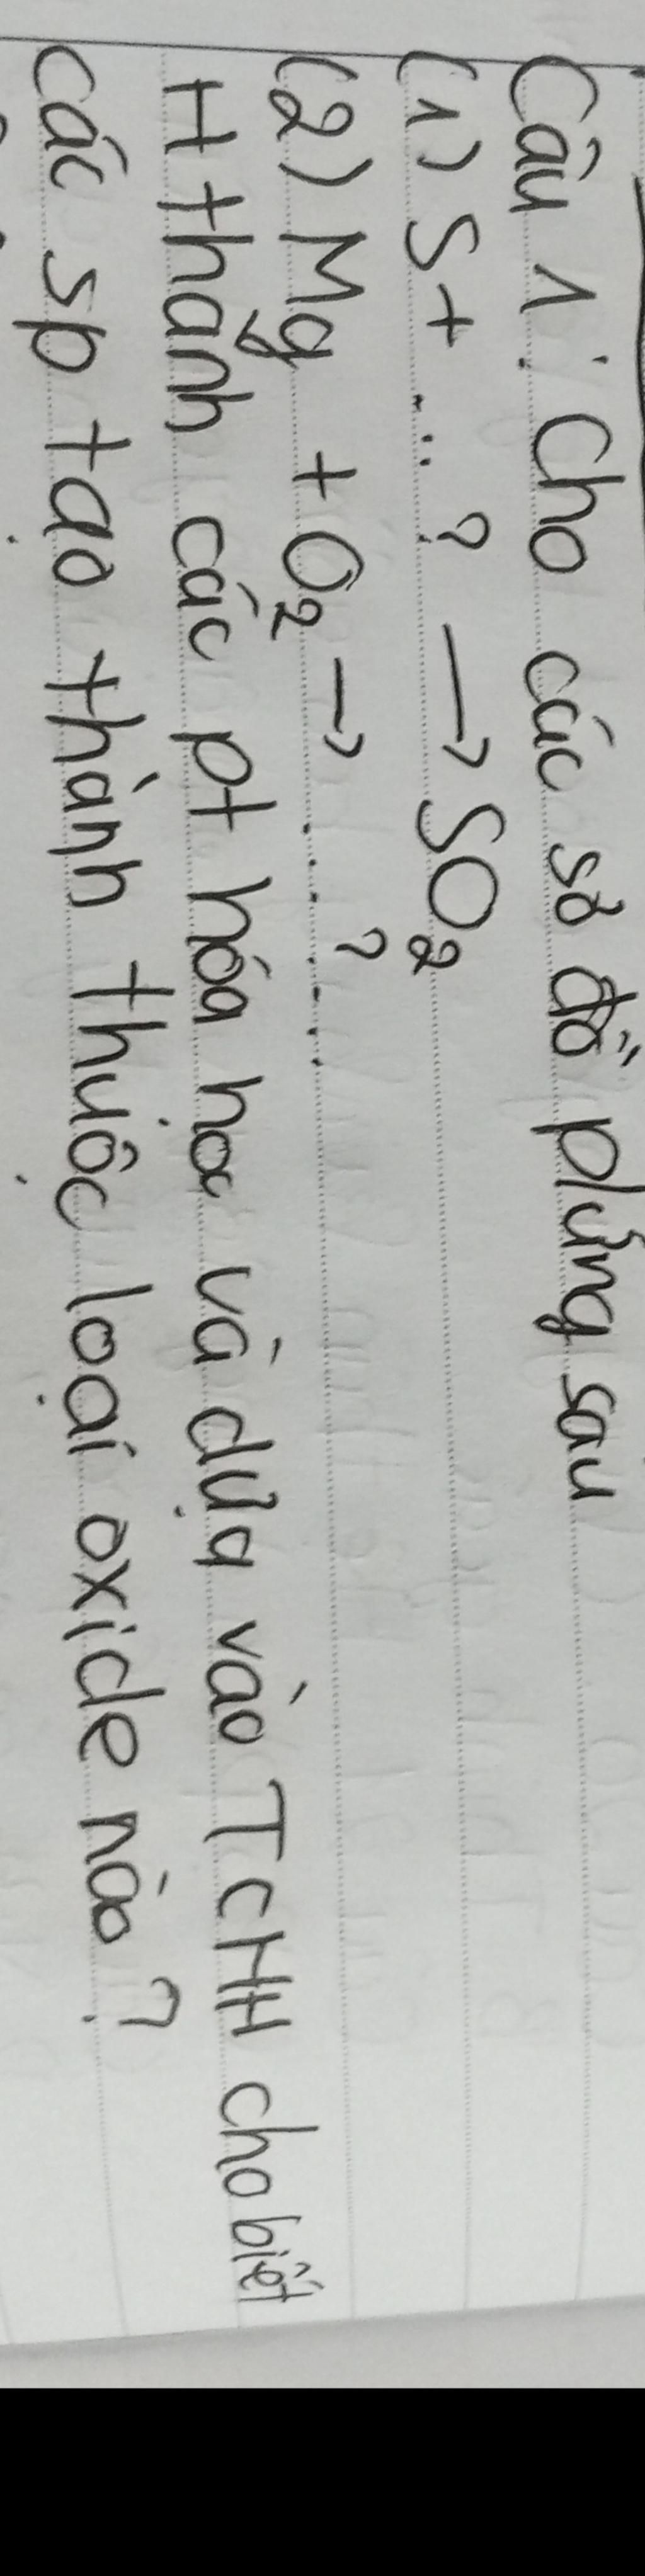 Câu 1: Cho các sơ đồ pứng sau
(1) S + ...? → SO₂
(2) Mg + O₂ → ...?...
H thành các pt hóa học và dựa vào TCHH cho biết
các sp tạo thành thuộc loại oxide nào?